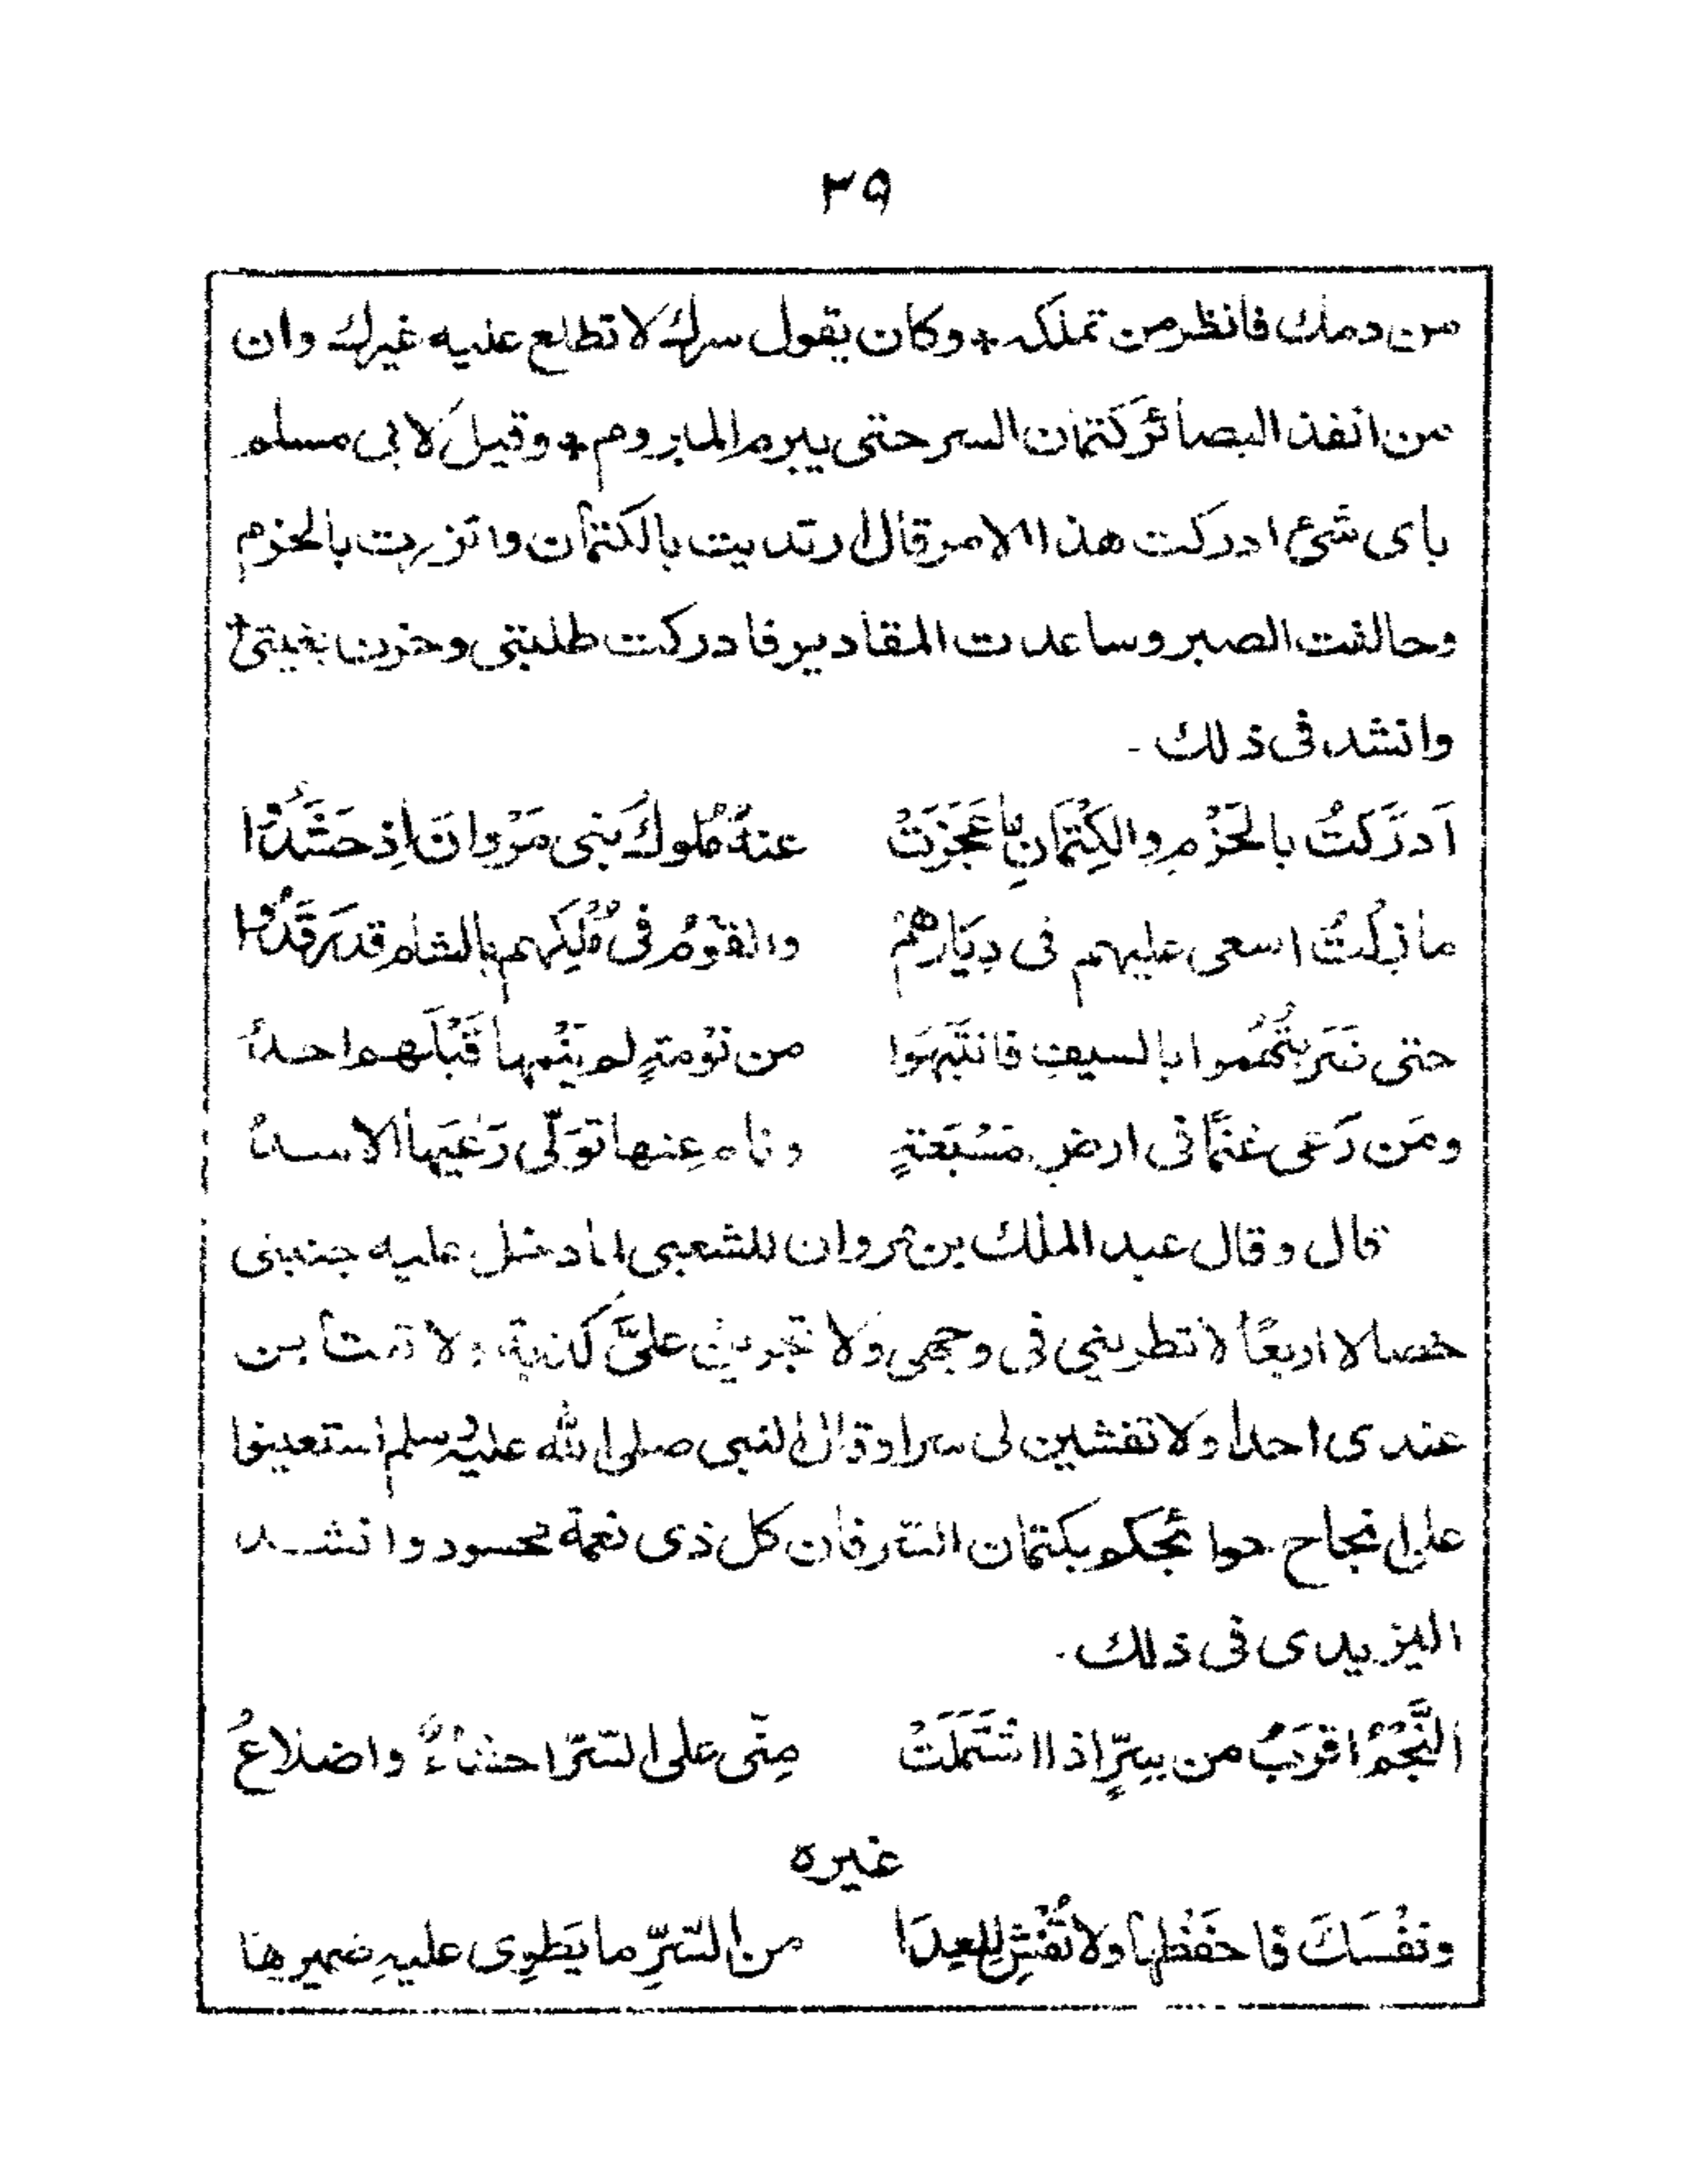 ٣٩
من دمك فانظر من تملكه * وكان يقول سرك لا تطلع عليه غيرك وان
من انفذ البصائر كتمان السر حتى يبرم المبروم * وقيل لابى مسلم
باى شئ ادركت هذا الامر قال ارتديت بالكتمان واتزرت بالحزم
وحالفت الصبر وساعدت المقادير فادركت طلبتى وحزت بغيتى *
وانشد فى ذلك -
اَدرَكتُ بالحَزْمِ والكِتْمَانِ ما عَجَزَتْ عنهُ مُلوكُ بَنِى مَرْوانَ اِذ حَشَدُوا
ما زِلتُ اسعى عليهم فى دِيَارِهمْ والقوْمُ فى مُلكِهم بالشام قد رَقَدُوا
حتى ضَرَبتُهُموا بالسيفِ فانتَبَهَوا من نَوْمةٍ لم يَنَمْها قَبْلَهم احدُ
ومَن رَعَى غَنَمًا فى ارضِ مَسْبَعَةٍ ونام عنها توَلّى رَعْيَها الاسدُ
قال وقال عبد الملك بن مروان للشعبى لما دخل عليه جنبنى
خصالا اربعًا لا تطرينى فى وجهى ولا تجرين علىَّ كذبة ولا تغتابن
عندى احدا ولا تفشين لى سرا وقال النبى صلى الله عليه وسلم استعينوا
على انجاح حوائجكم بكتمان السّر فان كل ذى نعمة محسود وانشد
اليزيدى فى ذلك -
النَّجْمُ اقرَبُ من سِرٍّ اذا اشتَمَلَتْ مِنّى على السّرّ احشاءٌ واضلاعُ
غيره
ونفْسَكَ فاحفَظْها ولا تُفْشِ لِلعِدَا من السّرِّ ما يَطوِى عليهِ ضميرها